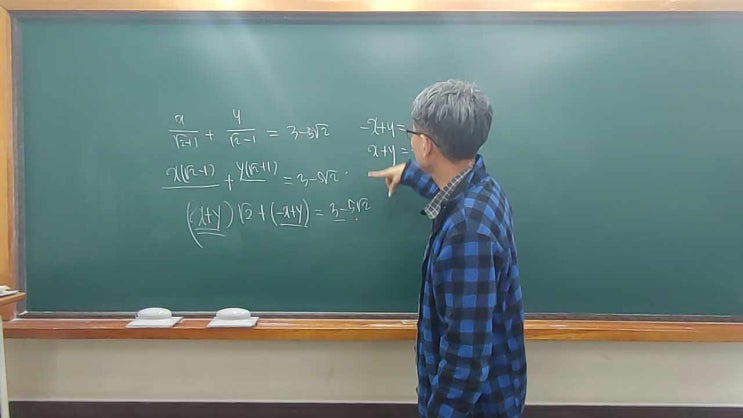 x/(√2+1) + y/(√2-1) = 3-5√2
x(√2-1) + y(√2+1) = 3-5√2
(x+y)√2+(-x+y) = 3-5√2
-x+y =
x+y =